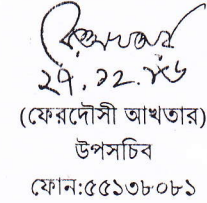 ২৭.১২.২৬
(ফেরদৌসী আখতার)
উপসচিব
ফোন:৫৫১৩৮০৮১